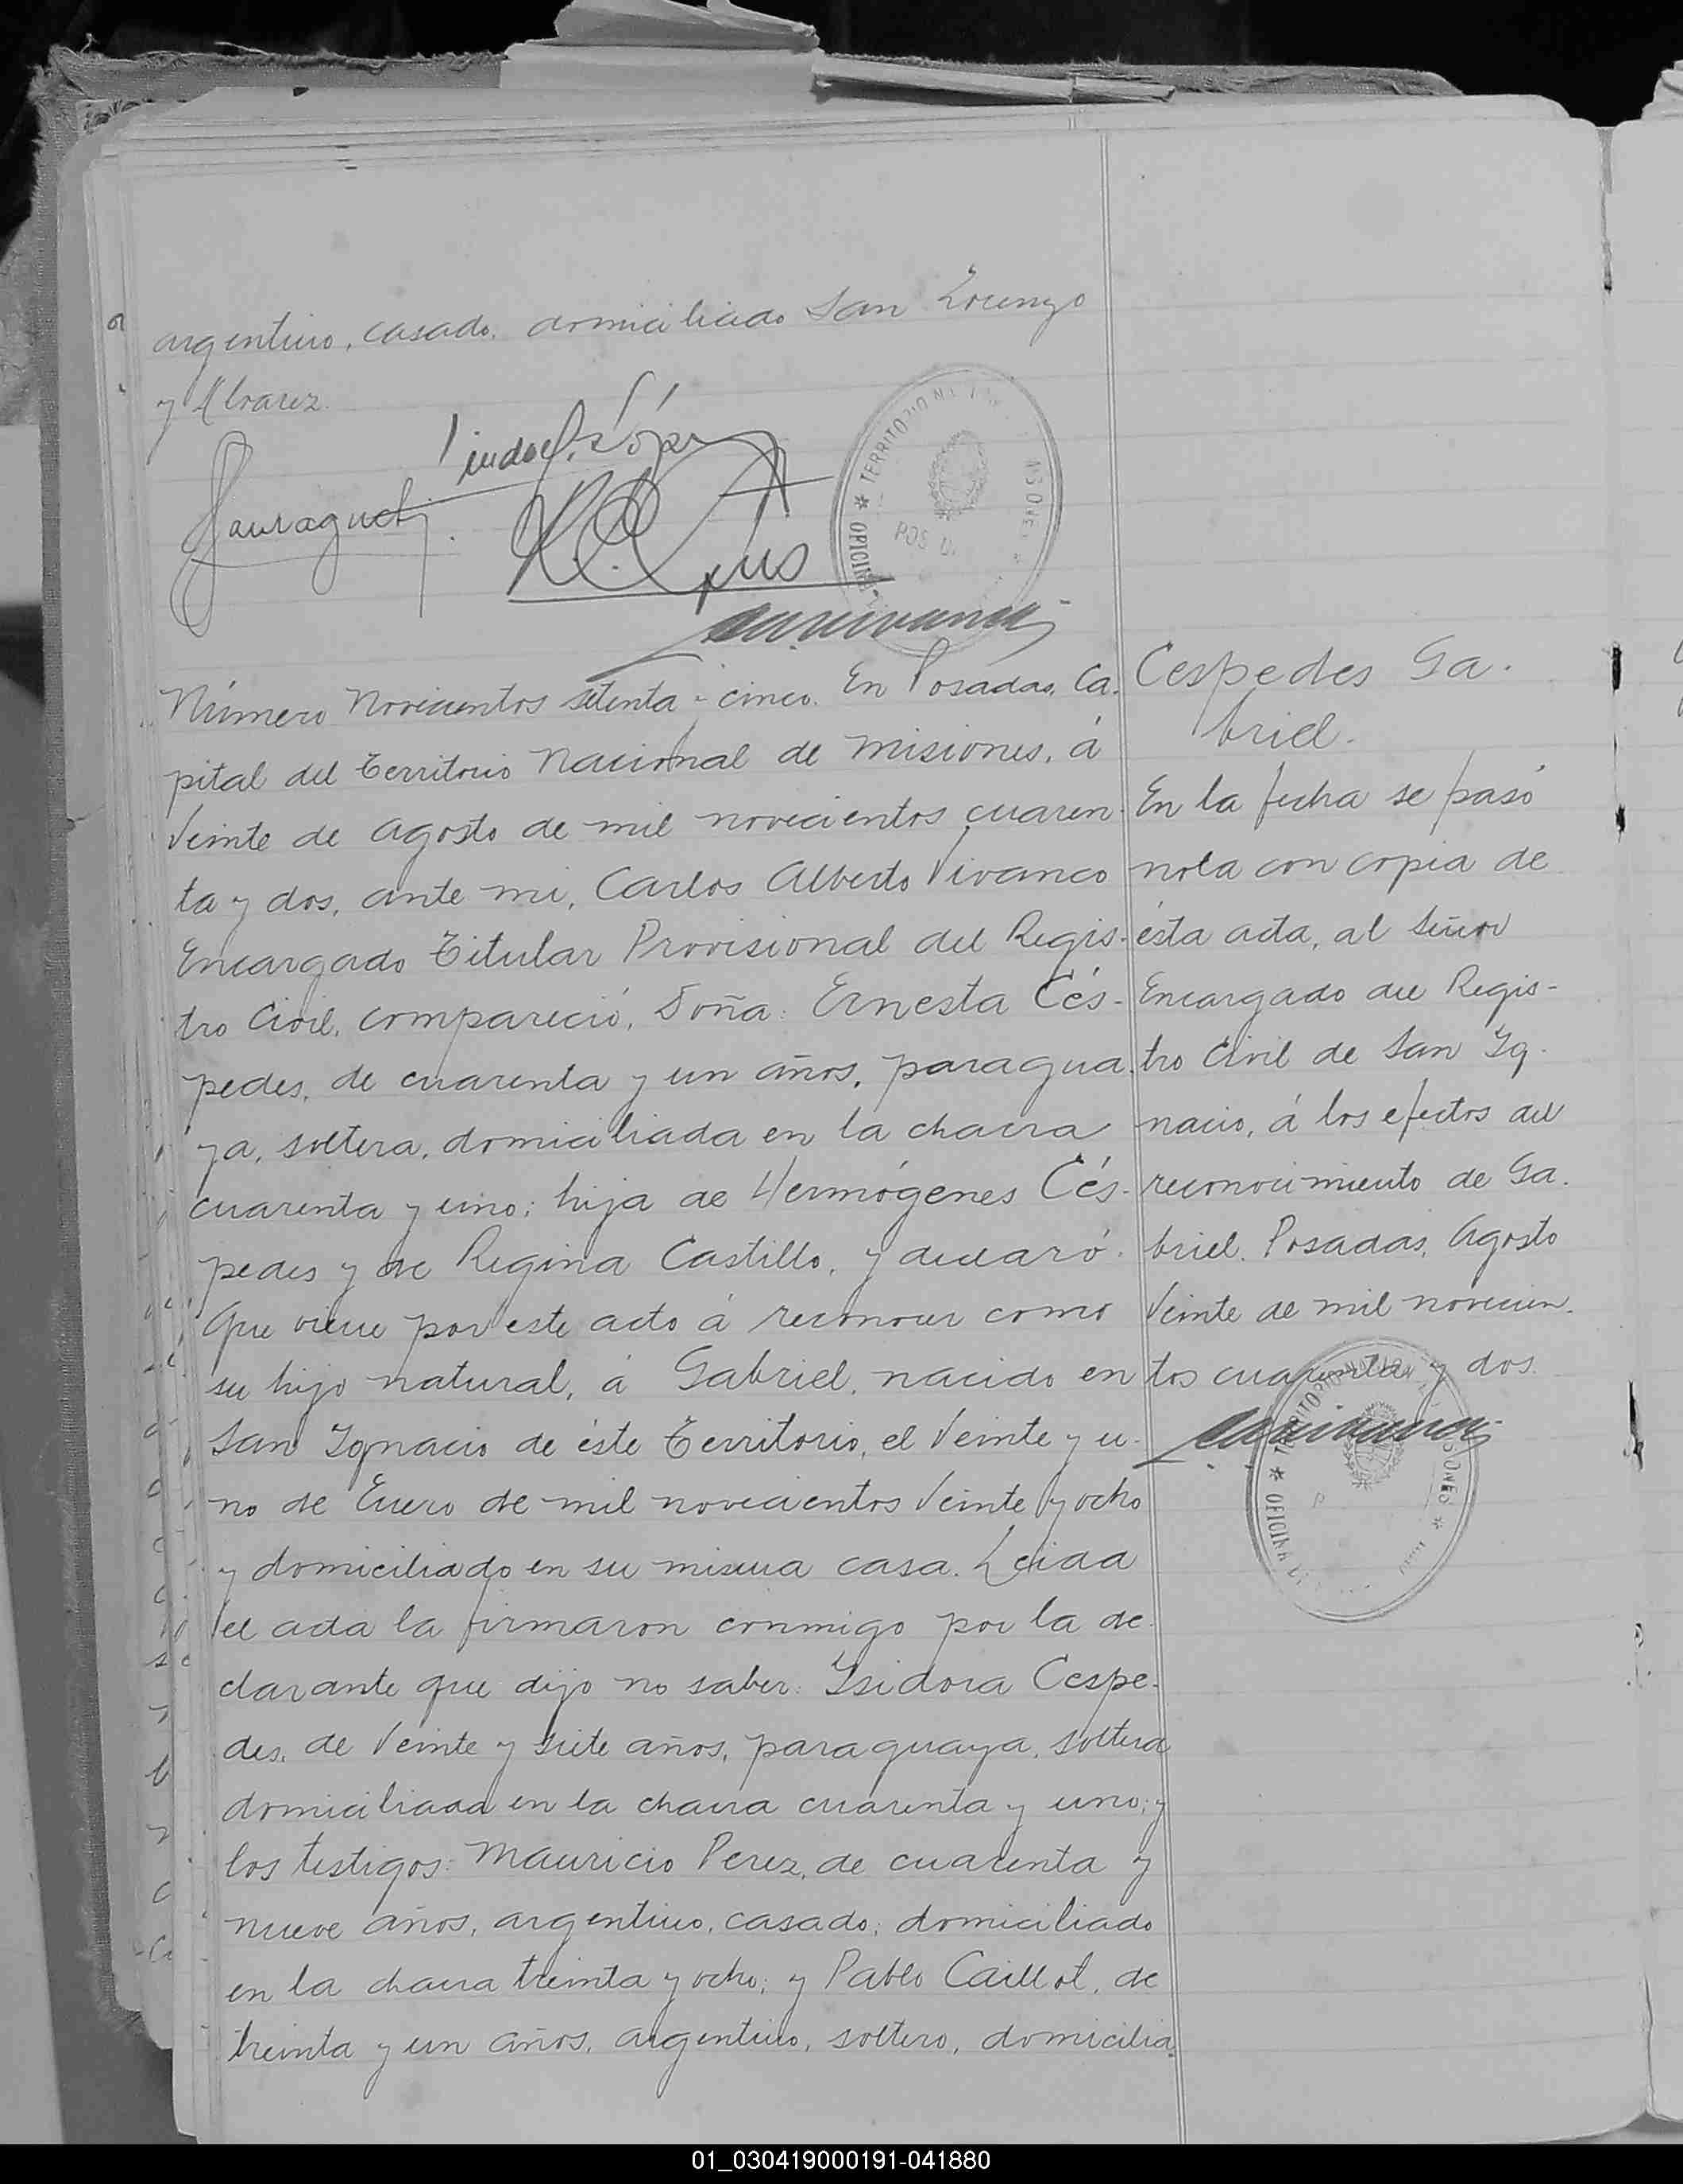 argentino, casado, domiciliado San Lorenzo
y Alvarez.
Número Novecientos setenta y cinco. En Posadas, Ca-
pital del Territorio Nacional de Misiones, á
Veinte de Agosto de mil novecientos cuaren-
ta y dos, ante mi, Carlos Alberto Vivanco
Encargado Titular Provisional del Regis-
tro Civil, compareció, Doña: Ernesta Cés-
pedes, de cuarenta y un años, paragua-
ya, soltera, domiciliada en la chacra
cuarenta y uno; hija de Hermógenes Cés-
pedes y de Regina Castillo, y declaró:
Que viene por este acto á reconocer como
su hijo natural, á Gabriel, nacido en
San Ignacio de éste Territorio, el Veinte y u-
no de Enero de mil novecientos Veinte y ocho
y domiciliado en su misma casa. Leida
el acta la firmaron conmigo por la de-
clarante que dijo no saber: Ysidora Cespe-
des, de Veinte y siete años, paraguaya, soltera
domiciliada en la chacra cuarenta y uno; y
los testigos: Mauricio Perez, de cuarenta y
nueve años, argentino, casado, domiciliado
en la chacra treinta y ocho; y Pablo Caillot, de
treinta y un años, argentino, soltero, domicilia-
Cespedes Ga-
briel.
En la fecha se pasó
nota con copia de
ésta acta, al Señor
Encargado del Regis-
tro Civil de San Ig-
nacio, á los efectos del
reconocimiento de Ga-
briel. Posadas, Agosto
Veinte de mil novecien-
tos cuarenta y dos.
01_030419000191-041880